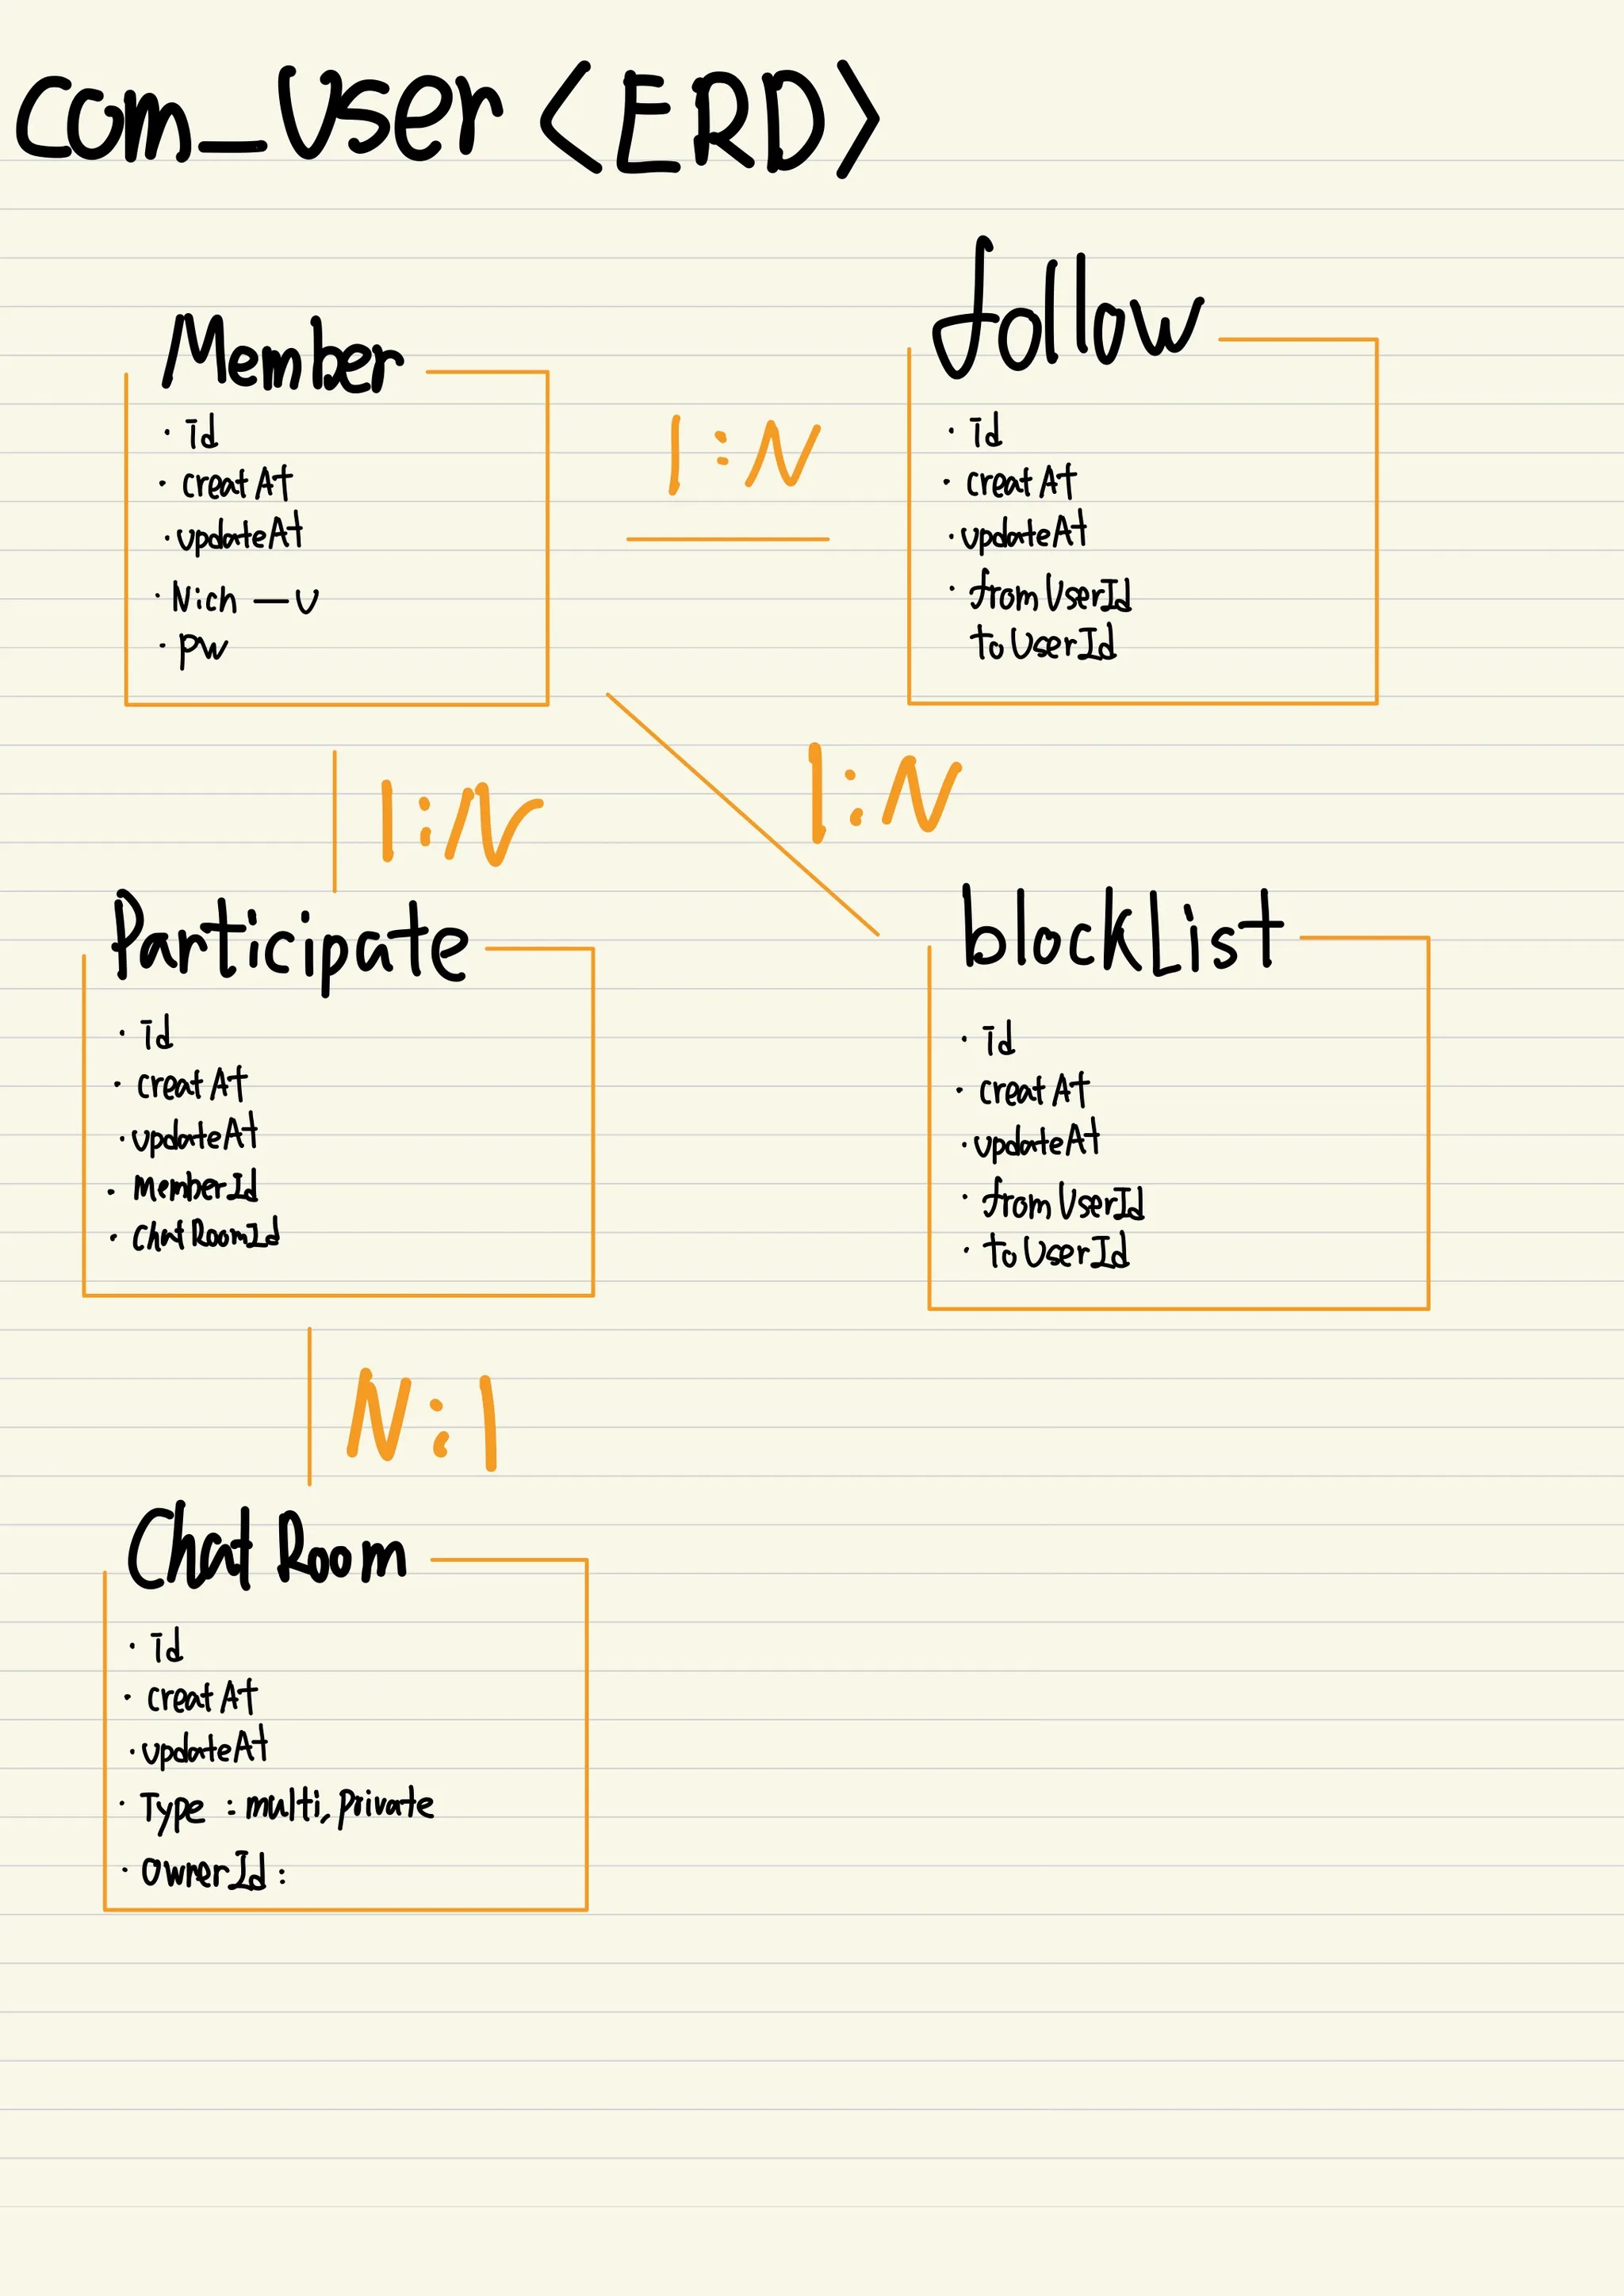 com_User <ERD>
Member
· id
· creatAt
· updateAt
· Nich — U
· pw
1:N
follow
· id
· creatAt
· updateAt
· fromUserId
toUserId
1:N
1:N
Participate
· id
· creatAt
· updateAt
· memberId
· chatRoomId
blockList
· id
· creatAt
· updateAt
· fromUserId
· toUserId
N:1
Chat Room
· id
· creatAt
· updateAt
· Type : multi, private
· ownerId :